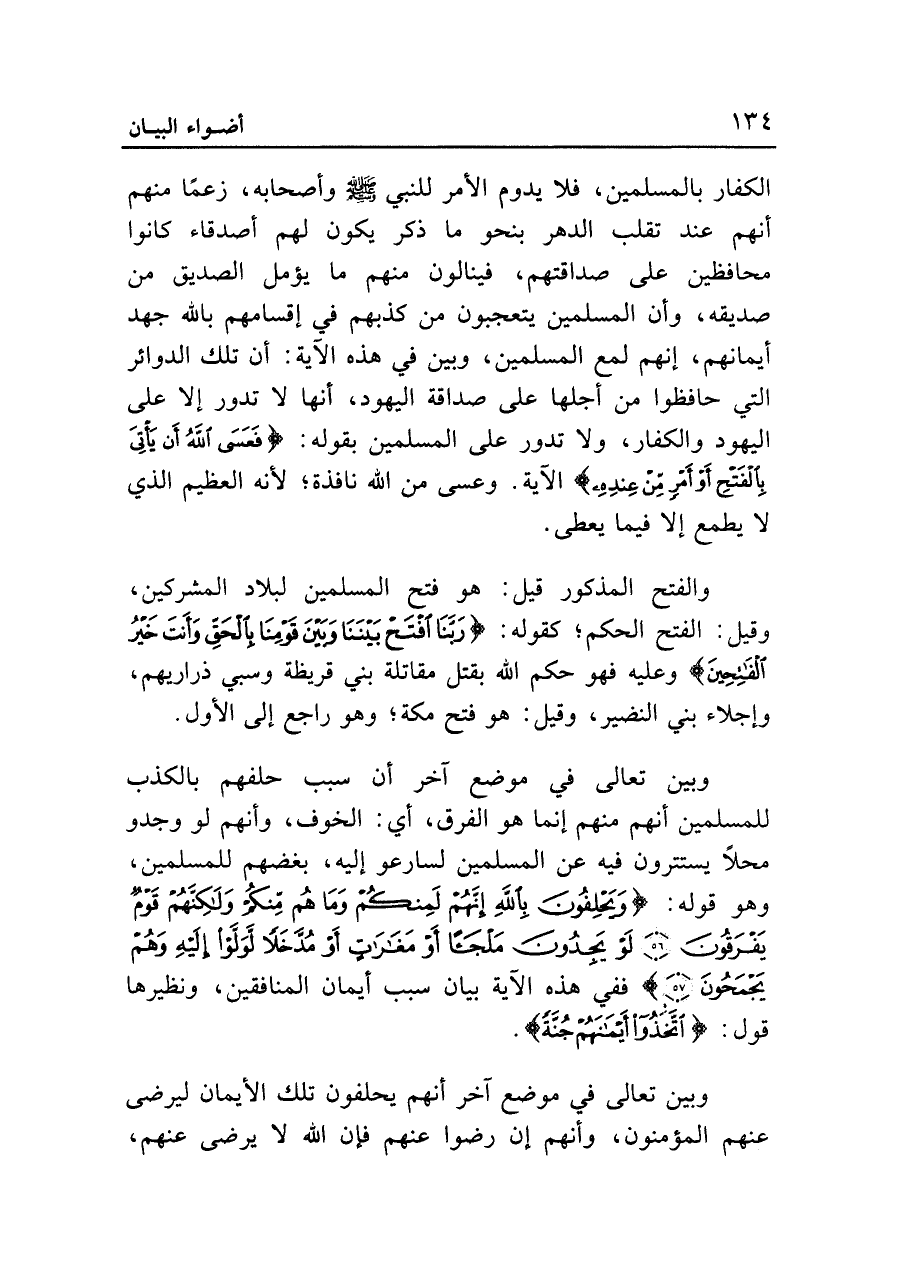 ١٣٤ أضواء البيان
الكفار بالمسلمين، فلا يدوم الأمر للنبي ﷺ وأصحابه، زعمًا منهم
أنهم عند تقلب الدهر بنحو ما ذكر يكون لهم أصدقاء كانوا
محافظين على صداقتهم، فينالون منهم ما يؤمل الصديق من
صديقه، وأن المسلمين يتعجبون من كذبهم في إقسامهم بالله جهد
أيمانهم، إنهم لمع المسلمين، وبين في هذه الآية: أن تلك الدوائر
التي حافظوا من أجلها على صداقة اليهود، أنها لا تدور إلا على
اليهود والكفار، ولا تدور على المسلمين بقوله: ﴿فَعَسَى ٱللَّهُ أَن يَأْتِىَ
بِٱلْفَتْحِ أَوْ أَمْرٍ مِّنْ عِندِهِۦ﴾ الآية. وعسى من الله نافذة؛ لأنه العظيم الذي
لا يطمع إلا فيما يعطى.
والفتح المذكور قيل: هو فتح المسلمين لبلاد المشركين،
وقيل: الفتح الحكم؛ كقوله: ﴿رَبَّنَا ٱفْتَحْ بَيْنَنَا وَبَيْنَ قَوْمِنَا بِٱلْحَقِّ وَأَنتَ خَيْرُ
ٱلْفَٰتِحِينَ﴾ وعليه فهو حكم الله بقتل مقاتلة بني قريظة وسبي ذراريهم،
وإجلاء بني النضير، وقيل: هو فتح مكة؛ وهو راجع إلى الأول.
وبين تعالى في موضع آخر أن سبب حلفهم بالكذب
للمسلمين أنهم منهم إنما هو الفرق، أي: الخوف، وأنهم لو وجدو
محلاً يستترون فيه عن المسلمين لسارعو إليه، بغضهم للمسلمين،
وهو قوله: ﴿وَيَحْلِفُونَ بِٱللَّهِ إِنَّهُمْ لَمِنكُمْ وَمَا هُم مِّنكُمْ وَلَٰكِنَّهُمْ قَوْمٌ
يَفْرَقُونَ ٥٦ لَوْ يَجِدُونَ مَلْجَـًٔا أَوْ مَغَٰرَٰتٍ أَوْ مُدَّخَلًا لَّوَلَّوْا۟ إِلَيْهِ وَهُمْ
يَجْمَحُونَ ٥٧﴾ ففي هذه الآية بيان سبب أيمان المنافقين، ونظيرها
قول: ﴿ٱتَّخَذُوٓا۟ أَيْمَٰنَهُمْ جُنَّةً﴾.
وبين تعالى في موضع آخر أنهم يحلفون تلك الأيمان ليرضى
عنهم المؤمنون، وأنهم إن رضوا عنهم فإن الله لا يرضى عنهم،